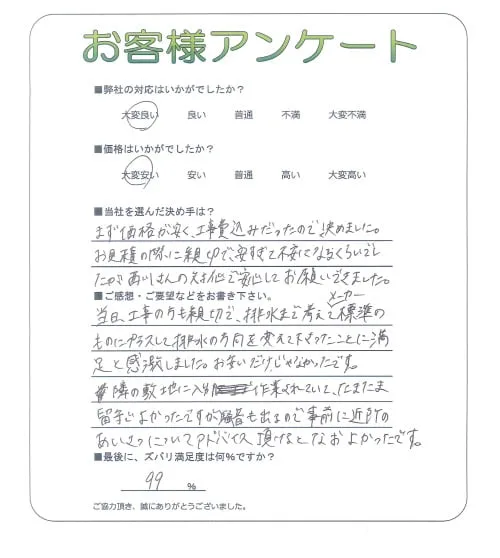 お客様アンケート
■弊社の対応はいかがでしたか？
大変良い 良い 普通 不満 大変不満
■価格はいかがでしたか？
大変安い 安い 普通 高い 大変高い
■当社を選んだ決め手は？
まず価格が安く、工事費込みだったので決めました。
お見積の際に親切で、安すぎて不安になるくらいでし
たが西川さんの対応で安心してお願いできました。
■ご感想・ご要望などをお書き下さい。
メーカー
当日、工事の方も親切で、排水まで考えて標準の
ものにプラスして排水の方向を変えて下さったことに満
足と感激しました。お安いだけじゃなかったです。
隣の敷地に入り作業されていて、たまたま
留守でよかったですが騒音も出るので事前に近所の
あいさつについてアドバイス頂けるとなおよかったです。
■最後に、ズバリ満足度は何%ですか？
99 %
ご協力頂き、誠にありがとうございました。